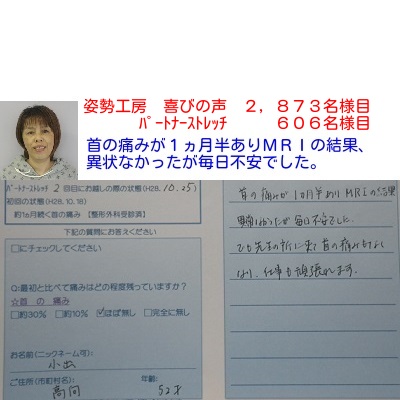 姿勢工房 喜びの声 2,873名様目
ﾊﾟｰﾄﾅｰｽﾄﾚｯﾁ 606名様目
首の痛みが1ヵ月半ありMRIの結果、
異状なかったが毎日不安でした。
ﾊﾟｰﾄﾅｰｽﾄﾚｯﾁ2回目にお越しの際の状態(H28.10.25)
初回の状態(H28.10.18)
約1ヵ月続く首の痛み 【整形外科受診済】
下記の質問にお答えください
□にチェックしてください
Q:最初と比べて痛みはどの程度残っていますか?
☆首の痛み
□約30% □約10% ☑ほぼ無し □完全に無し
お名前(ニックネーム可):
小出
ご住所(市町村名): 年齢:
52才
首の痛みが1ヵ月半ありMRIの結果
異状なかったが毎日不安でした。
でも先生の所に来て首の痛みもなく
なり、仕事も頑張れます。